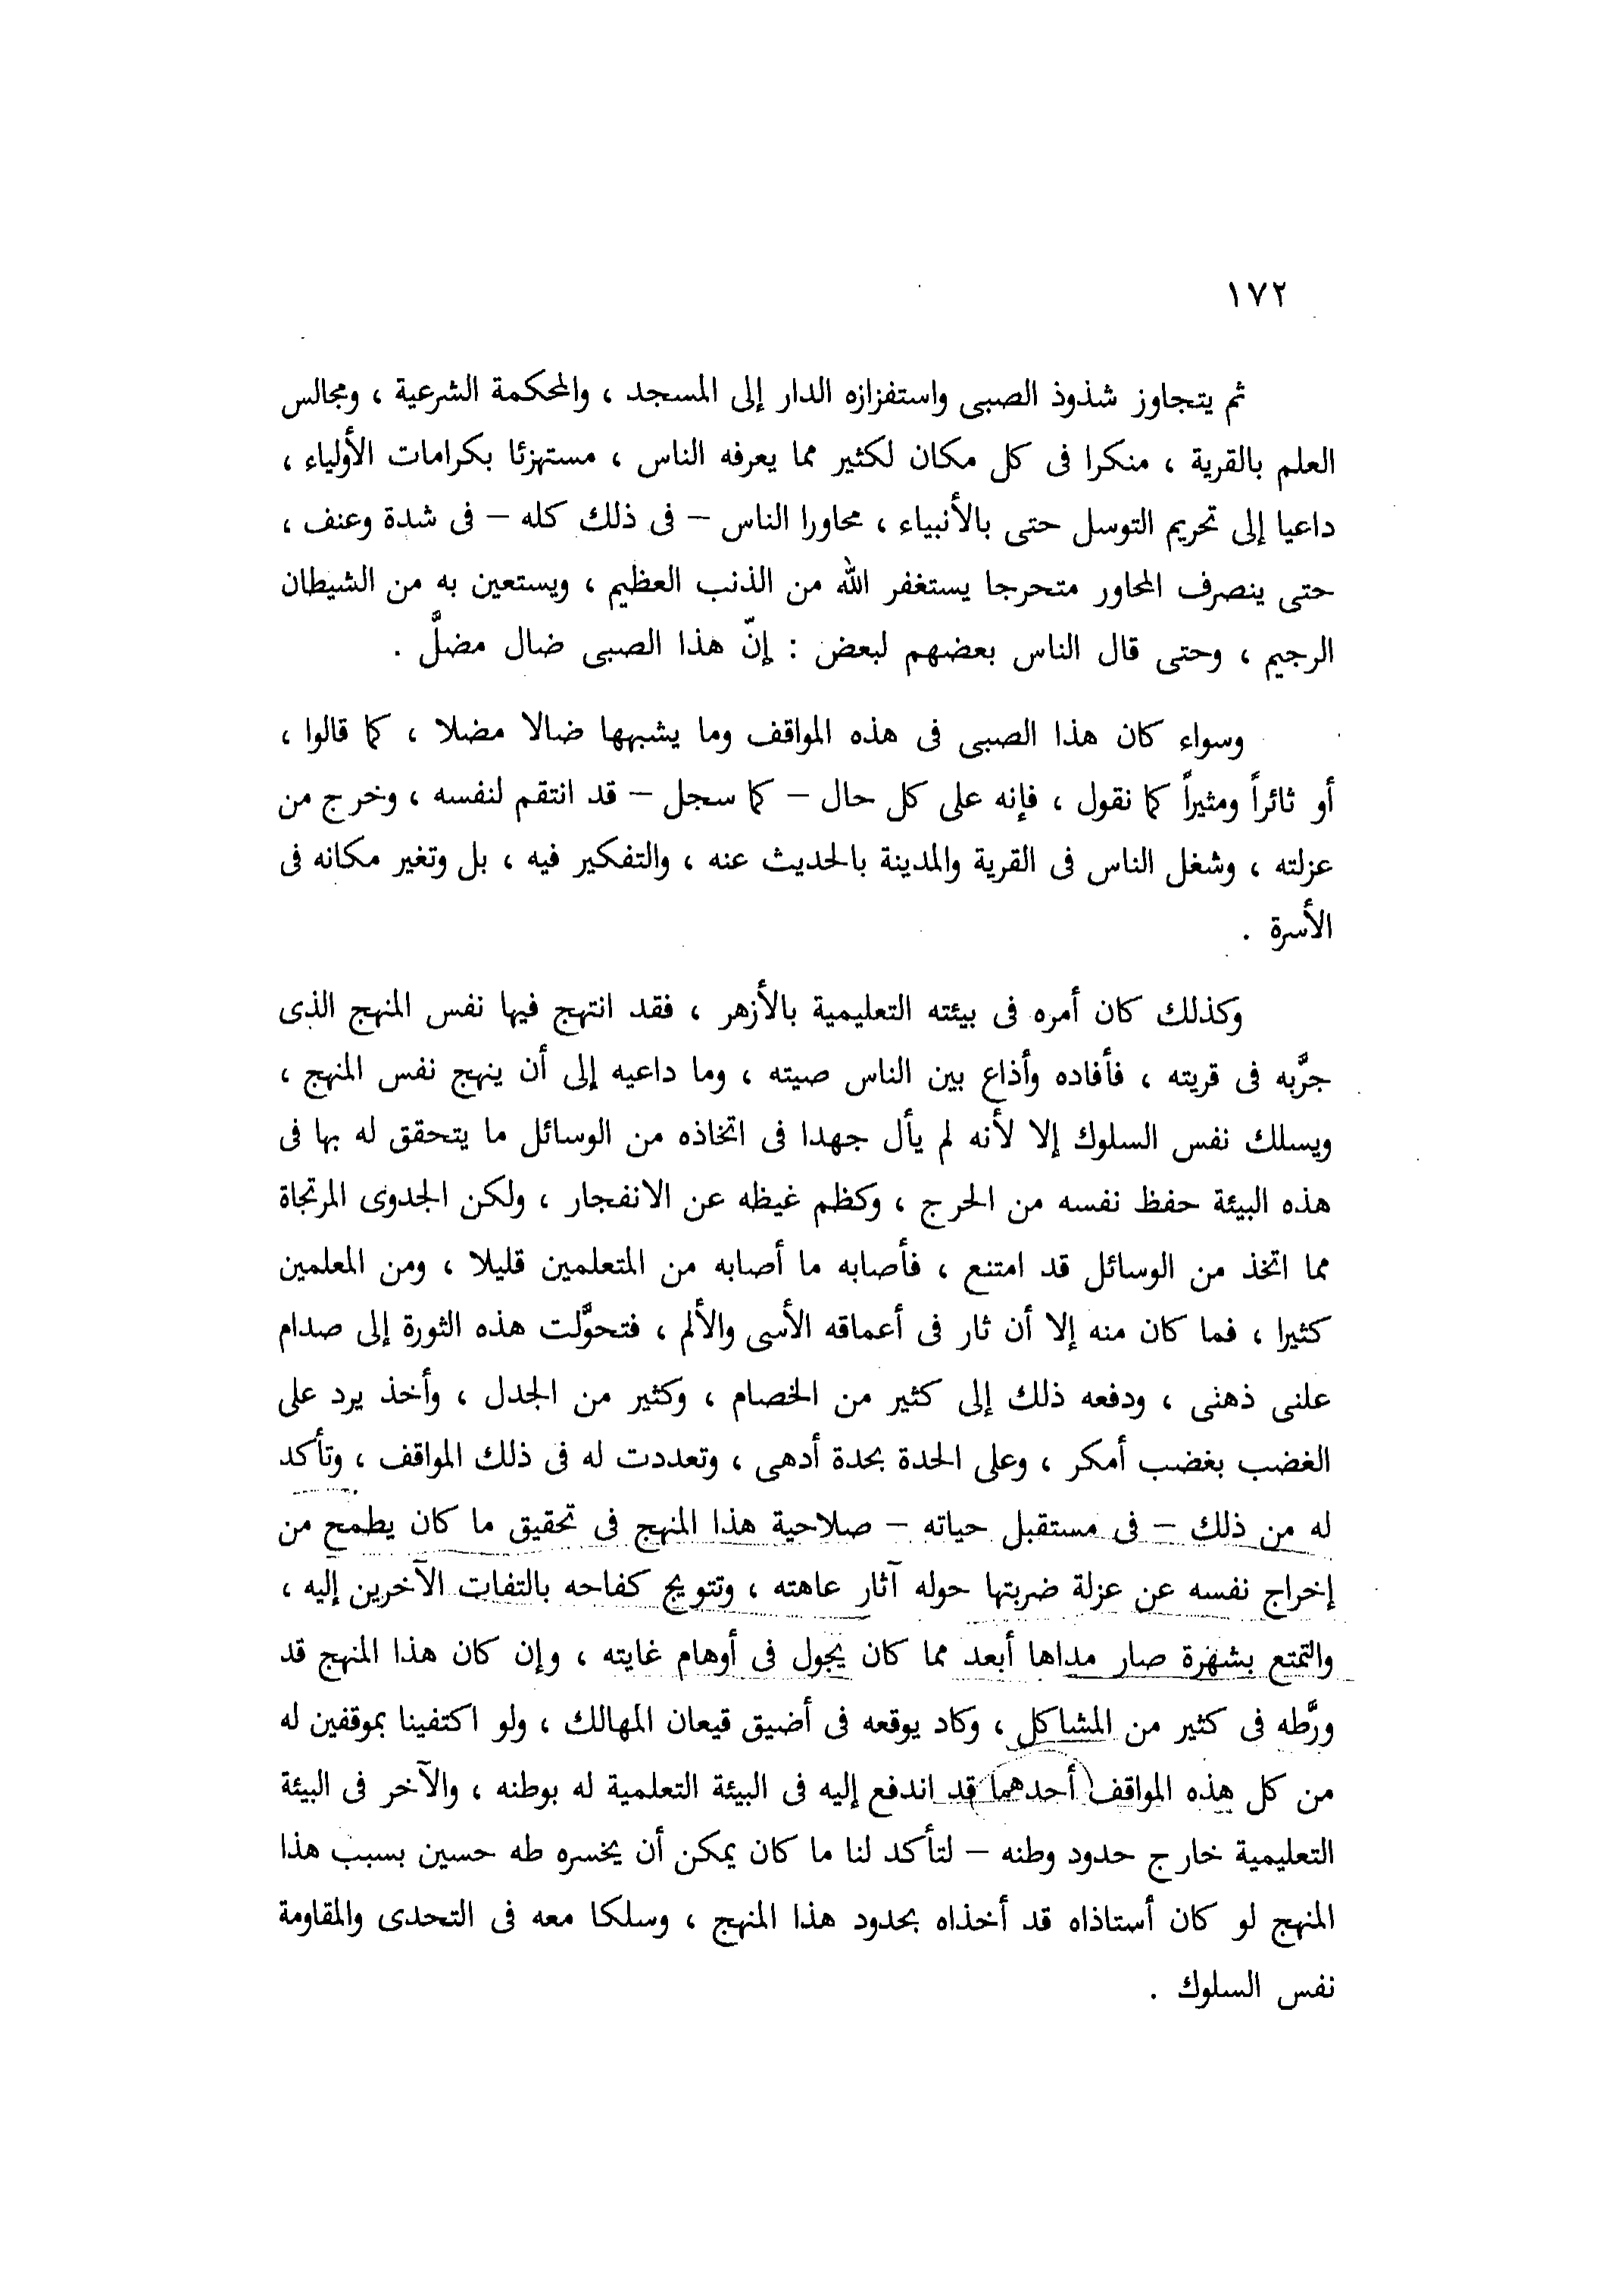 ١٧٢
ثم يتجاوز شذوذ الصبى واستفزازه الدار إلى المسجد ، والمحكمة الشرعية ، ومجالس
العلم بالقرية ، منكرا فى كل مكان لكثير مما يعرفه الناس ، مستهزئا بكرامات الأولياء ،
داعيا إلى تحريم التوسل حتى بالأنبياء ، محاورا الناس – فى ذلك كله – فى شدة وعنف ،
حتى ينصرف المحاور متحرجا يستغفر الله من الذنب العظيم ، ويستعين به من الشيطان
الرجيم ، وحتى قال الناس بعضهم لبعض : إنّ هذا الصبى ضال مضلَّ .
وسواء كان هذا الصبى فى هذه المواقف وما يشبهها ضالا مضلا ، كما قالوا ،
أو ثائراً ومثيراً كما نقول ، فإنه على كل حال – كما سجل – قد انتقم لنفسه ، وخرج من
عزلته ، وشغل الناس فى القرية والمدينة بالحديث عنه ، والتفكير فيه ، بل وتغير مكانه فى
الأسرة .
وكذلك كان أمره فى بيئته التعليمية بالأزهر ، فقد انتهج فيها نفس المنهج الذى
جرَّبه فى قريته ، فأفاده وأذاع بين الناس صيته ، وما داعيه إلى أن ينهج نفس المنهج ،
ويسلك نفس السلوك إلا لأنه لم يأل جهدا فى اتخاذه من الوسائل ما يتحقق له بها فى
هذه البيئة حفظ نفسه من الحرج ، وكظم غيظه عن الانفجار ، ولكن الجدوى المرتجاة
مما اتخذ من الوسائل قد امتنع ، فأصابه ما أصابه من المتعلمين قليلا ، ومن المعلمين
كثيرا ، فما كان منه إلا أن ثار فى أعماقه الأسى والألم ، فتحوَّلت هذه الثورة إلى صدام
علنى ذهنى ، ودفعه ذلك إلى كثير من الخصام ، وكثير من الجدل ، وأخذ يرد على
الغضب بغضب أمكر ، وعلى الحدة بحدة أدهى ، وتعددت له فى ذلك المواقف ، وتأكد
له من ذلك – فى مستقبل حياته – صلاحية هذا المنهج فى تحقيق ما كان يطمح من
إخراج نفسه عن عزلة ضربتها حوله آثار عاهته ، وتتويج كفاحه بالتفات الآخرين إليه ،
والتمتع بشهرة صار مداها أبعد مما كان يجول فى أوهام غايته ، وإن كان هذا المنهج قد
ورَّطه فى كثير من المشاكل ، وكاد يوقعه فى أضيق قيعان المهالك ، ولو اكتفينا بموقفين له
من كل هذه المواقف (أحدهما قد اندفع إليه فى البيئة التعلمية له بوطنه ، والآخر فى البيئة
التعليمية خارج حدود وطنه – لتأكد لنا ما كان يمكن أن يخسره طه حسين بسبب هذا
المنهج لو كان أستاذاه قد أخذاه بحدود هذا المنهج ، وسلكا معه فى التحدى والمقاومة
نفس السلوك .